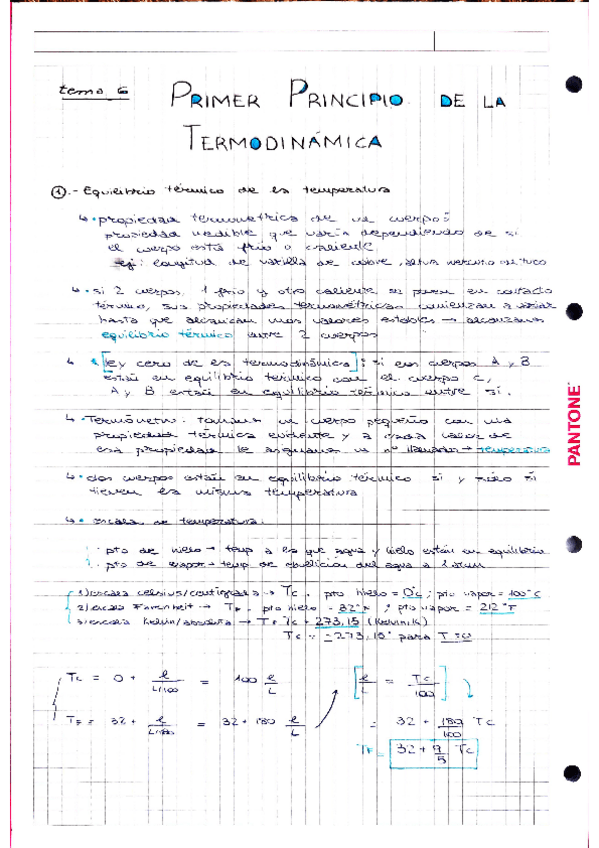 tema 6
PRIMER PRINCIPIO DE LA
TERMODINÁMICA
①.- Equilibrio térmico de la temperatura
↳ • propiedad termométrica de un cuerpo:
propiedad medible que varía dependiendo de si
el cuerpo está frío o caliente
ej: longitud de varilla de cobre, altura mercurio en tubo
↳ • si 2 cuerpos, 1 frío y otro caliente se ponen en contacto
térmico, sus propiedades termométricas comienzan a variar
hasta que alcanzan unos valores estables → alcanzan
equilibrio térmico entre 2 cuerpos
↳ • [ley cero de la termodinámica]: si los cuerpos A y B
están en equilibrio térmico con el cuerpo C,
A y B están en equilibrio térmico entre sí.
↳ • Termómetro: tomamos un cuerpo pequeño con una
propiedad térmica evidente y a cada valor de
esa propiedad le asignamos un nº llamado → temperatura
↳ • dos cuerpos están en equilibrio térmico si y sólo si
tienen la misma temperatura
↳ • escala de temperatura:
· pto de hielo → temp a la que agua y hielo están en equilibrio
· pto de vapor → temp de ebullición del agua a 1 atm
1) escala celsius/centígrada → Tc . pto hielo = 0°C ; pto vapor = 100°C
2) escala Farenheit → TF . pto hielo = 32°F ; pto vapor = 212°F
3) escala Kelvin/absoluta → T = Tc + 273,15 (Kelvin, K)
Tc = -273,15° para T = 0
Tc = 0 + l / L/100 = 100 l/L [ l/L = Tc/100 ]
TF = 32 + l / L/180 = 32 + 180 l/L = 32 + 180/100 Tc
TF = 32 + 9/5 Tc
PANTONE